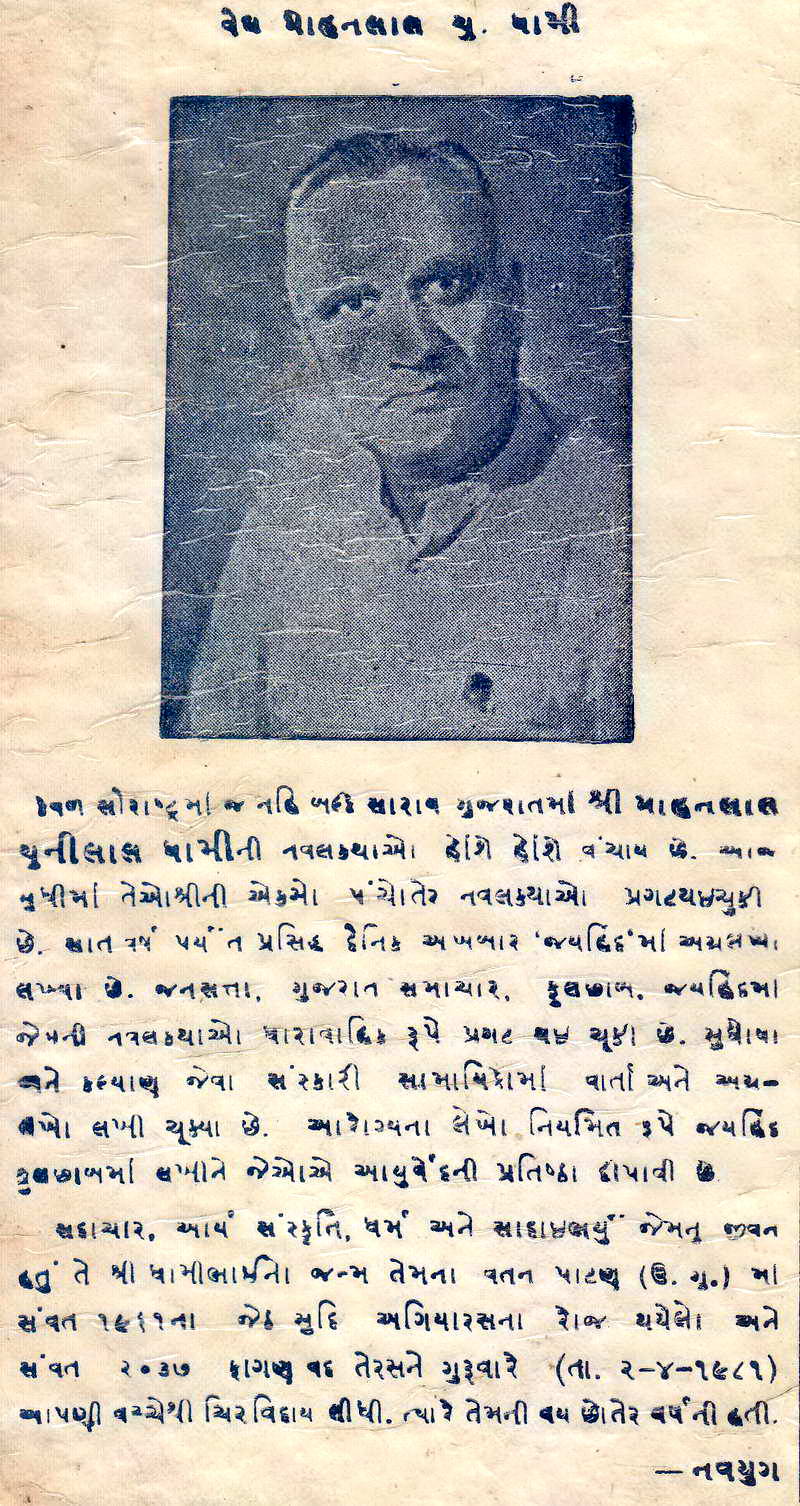 વૈદ્ય મોહનલાલ ચુ. ધામી
કેવળ સૌરાષ્ટ્રમાં જ નહિ બલ્કે સારાય ગુજરાતમાં શ્રી મોહનલાલ
ચુનીલાલ ધામીની નવલકથાઓ હોંશે હોંશે વંચાય છે. આજ
સુધીમાં તેઓશ્રીની એકસો પંચોતેર નવલકથાઓ પ્રગટ થઈ ચુકી
છે. સાત વર્ષ પર્યંત પ્રસિદ્ધ દૈનિક અખબાર ‘જયહિંદ’માં અગ્રલેખો
લખ્યા છે. જનસત્તા, ગુજરાત સમાચાર, ફુલછાબ, જયહિંદમાં
જેમની નવલકથાઓ ધારાવાહિક રૂપે પ્રગટ થઈ ચૂકી છે. સુઘોષા
અને કલ્યાણ જેવા સંસ્કારી સામાયિકોમાં વાર્તા અને અગ્ર-
લેખો લખી ચૂક્યા છે. આરોગ્યના લેખો નિયમિત રૂપે જયહિંદ
ફુલછાબમાં લખીને જેઓએ આયુર્વેદની પ્રતિષ્ઠા દીપાવી છે
સદાચાર, આર્ય સંસ્કૃતિ, ધર્મ અને સાદાઈભર્યું જેમનુ જીવન
હતું તે શ્રી ધામીભાઈનો જન્મ તેમના વતન પાટણ (ઉ. ગુ.) માં
સંવત ૧૯૬૧ના જેઠ સુદિ અગિયારસના રોજ થયેલો અને
સંવત ૨૦૩૭ ફાગણ વદ તેરસને ગુરૂવારે (તા. ૨-૪-૧૯૮૧)
આપણી વચ્ચેથી ચિરવિદાય લીધી. ત્યારે તેમની વય છોતેર વર્ષની હતી.
— નવયુગ